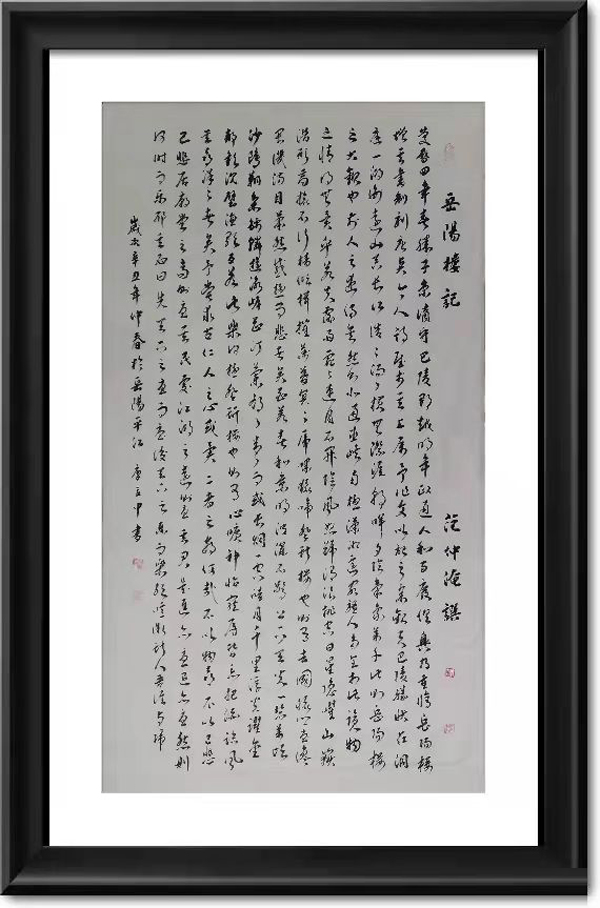 岳陽樓記 范仲淹撰
慶曆四年春滕子京謫守巴陵郡越明年政通人和百廢俱興乃重修岳陽樓
增其舊制刻唐賢今人詩賦於其上屬予作文以記之予觀夫巴陵勝狀在洞
庭一湖銜遠山吞長江浩浩湯湯橫無際涯朝暉夕陰氣象萬千此則岳陽樓
之大觀也前人之述備矣然則北通巫峽南極瀟湘遷客騷人多會於此覽物
之情得無異乎若夫霪雨霏霏連月不開陰風怒號濁浪排空日星隱曜山嶽
潛形商旅不行檣傾楫摧薄暮冥冥虎嘯猿啼登斯樓也則有去國懷鄉憂讒
畏譏滿目蕭然感極而悲者矣至若春和景明波瀾不驚上下天光一碧萬頃
沙鷗翔集錦鱗游泳岸芷汀蘭郁郁青青而或長煙一空皓月千里浮光躍金
靜影沉璧漁歌互答此樂何極登斯樓也則有心曠神怡寵辱皆忘把酒臨風
其喜洋洋者矣予嘗求古仁人之心或異二者之為何哉不以物喜不以己悲
己悲居廟堂之高則憂其民處江湖之遠則憂其君是進亦憂退亦憂然則
何時而樂耶其必曰先天下之憂而憂後天下之樂而樂歟噫微斯人吾誰與歸
歲次辛丑年仲春於岳陽平江 中書